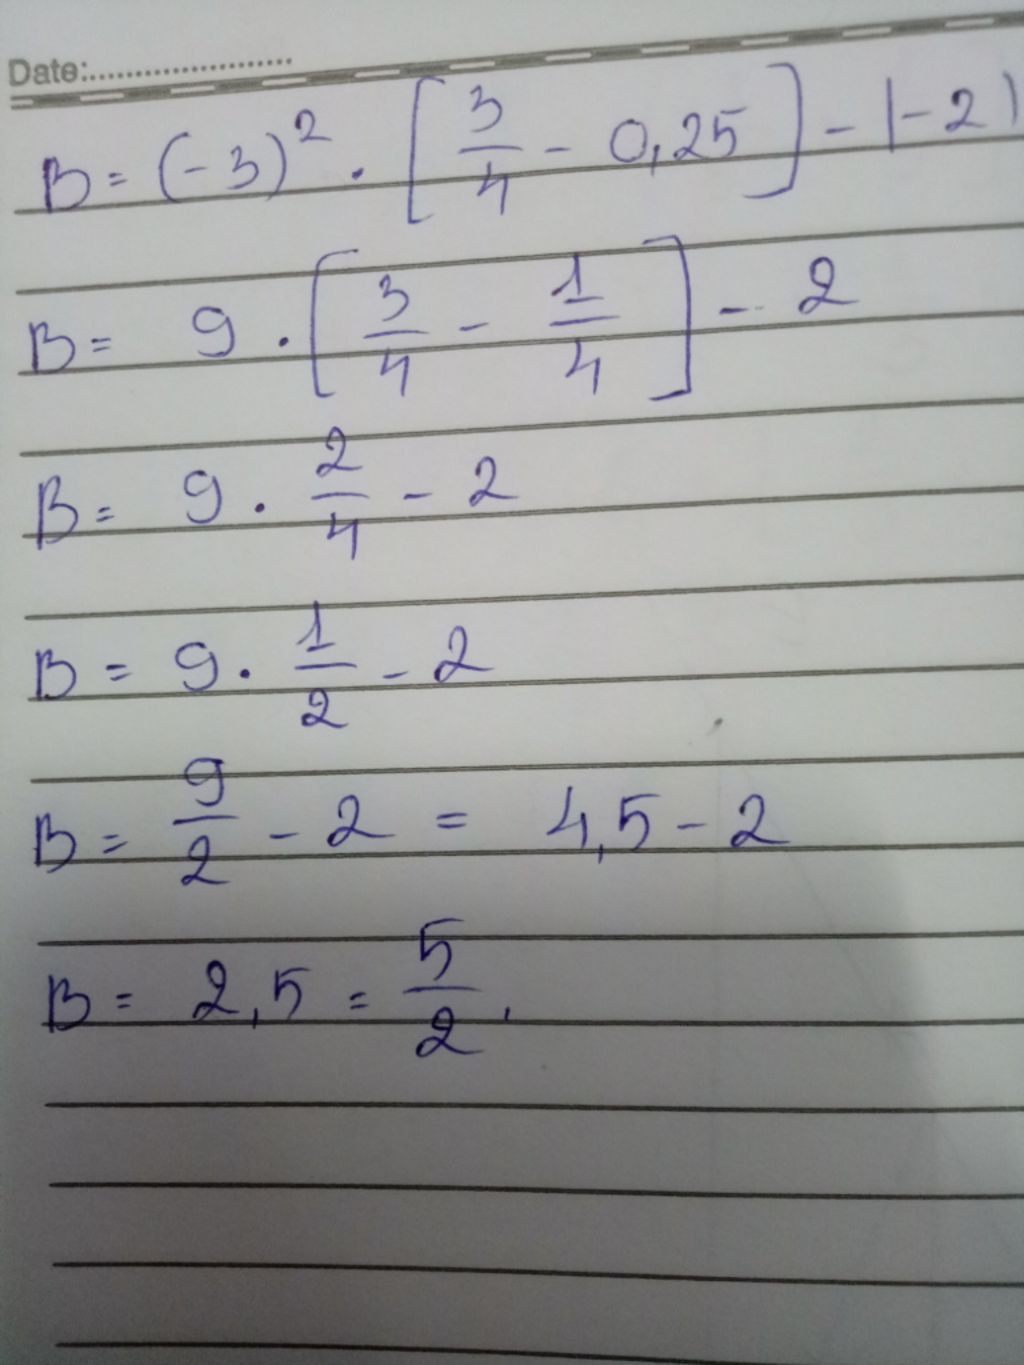 Date:.....................
B = (-3)² . [3/4 - 0,25] - |-2|
B = 9 . [3/4 - 1/4] - 2
B = 9 . 2/4 - 2
B = 9 . 1/2 - 2
B = 9/2 - 2 = 4,5 - 2
B = 2,5 = 5/2 .